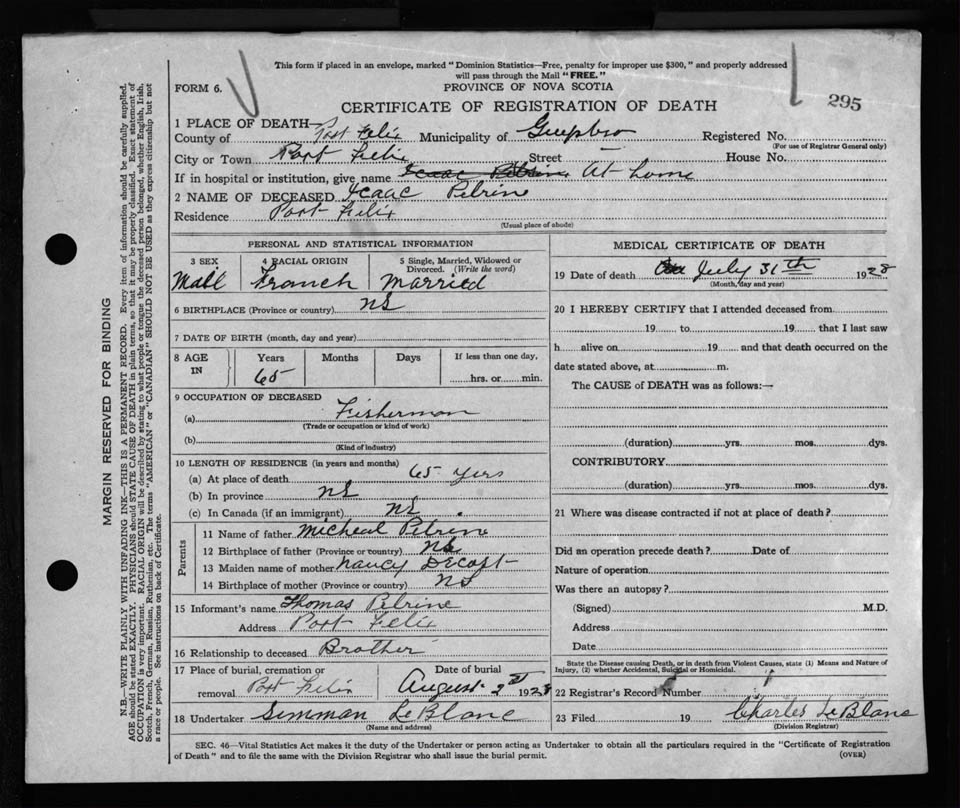 This form if placed in an envelope, marked "Dominion Statistics—Free, penalty for improper use $300," and properly addressed
will pass through the Mail "FREE."
FORM 6.
PROVINCE OF NOVA SCOTIA
295
CERTIFICATE OF REGISTRATION OF DEATH
1 PLACE OF DEATH—
County of Port Felix Municipality of Registered No.
(For use of Registrar General only)
City or Town Port Felix Street — House No.
If in hospital or institution, give name Isaac Pelrine At home
2 NAME OF DECEASED Isaac Pelrine
Residence Port Felix
(Usual place of abode)
PERSONAL AND STATISTICAL INFORMATION
3 SEX 4 RACIAL ORIGIN 5 Single, Married, Widowed or
Divorced. (Write the word)
Male French Married
6 BIRTHPLACE (Province or country) NS
7 DATE OF BIRTH (month, day and year)
8 AGE IN Years Months Days If less than one day,
65 hrs. or min.
9 OCCUPATION OF DECEASED
(a) Fisherman
(Trade or occupation or kind of work)
(b)
(Kind of industry)
10 LENGTH OF RESIDENCE (in years and months)
(a) At place of death 65 yers
(b) In province NS
(c) In Canada (if an immigrant) NS
Parents
11 Name of father Micheal Pelrine
12 Birthplace of father (Province or country) NS
13 Maiden name of mother Nancy Decost
14 Birthplace of mother (Province or country) NS
15 Informant's name Thomas Pelrine
Address Port Felix
16 Relationship to deceased Brother
17 Place of burial, cremation or Date of burial
removal Port Felix August 2nd 1928
18 Undertaker Simman LeBlanc
(Name and address)
MEDICAL CERTIFICATE OF DEATH
19 Date of death July 31th 1928
(Month, day and year)
20 I HEREBY CERTIFY that I attended deceased from
19 to 19 that I last saw
h alive on 19 and that death occurred on the
date stated above, at m.
The CAUSE of DEATH was as follows:—
(duration) yrs. mos. dys.
CONTRIBUTORY
(duration) yrs. mos. dys.
21 Where was disease contracted if not at place of death?
Did an operation precede death? Date of
Nature of operation
Was there an autopsy?
(Signed) M.D.
Address
Date
State the Disease causing Death, or in death from Violent Causes, state (1) Means and Nature of
Injury, (2) whether Accidental, Suicidal or Homicidal.
22 Registrar's Record Number
23 Filed 19 Charles LeBlanc
(Division Registrar)
SEC. 46—Vital Statistics Act makes it the duty of the Undertaker or person acting as Undertaker to obtain all the particulars required in the "Certificate of Registration
of Death" and to file the same with the Division Registrar who shall issue the burial permit. (OVER)
MARGIN RESERVED FOR BINDING
N.B.—WRITE PLAINLY WITH UNFADING INK—THIS IS A PERMANENT RECORD. Every item of information should be carefully supplied.
AGE should be stated EXACTLY. PHYSICIANS should STATE CAUSE OF DEATH in plain terms, so that it may be properly classified. Exact statement of
OCCUPATION is very important. RACIAL ORIGIN will be described by stating to what people or tongue the deceased person belonged, whether English, Irish,
Scotch, French, German, Russian, Ruthenian, etc. The terms "AMERICAN" or "CANADIAN" SHOULD NOT BE USED as they express citizenship but not
a race or people. See instructions on back of Certificate.